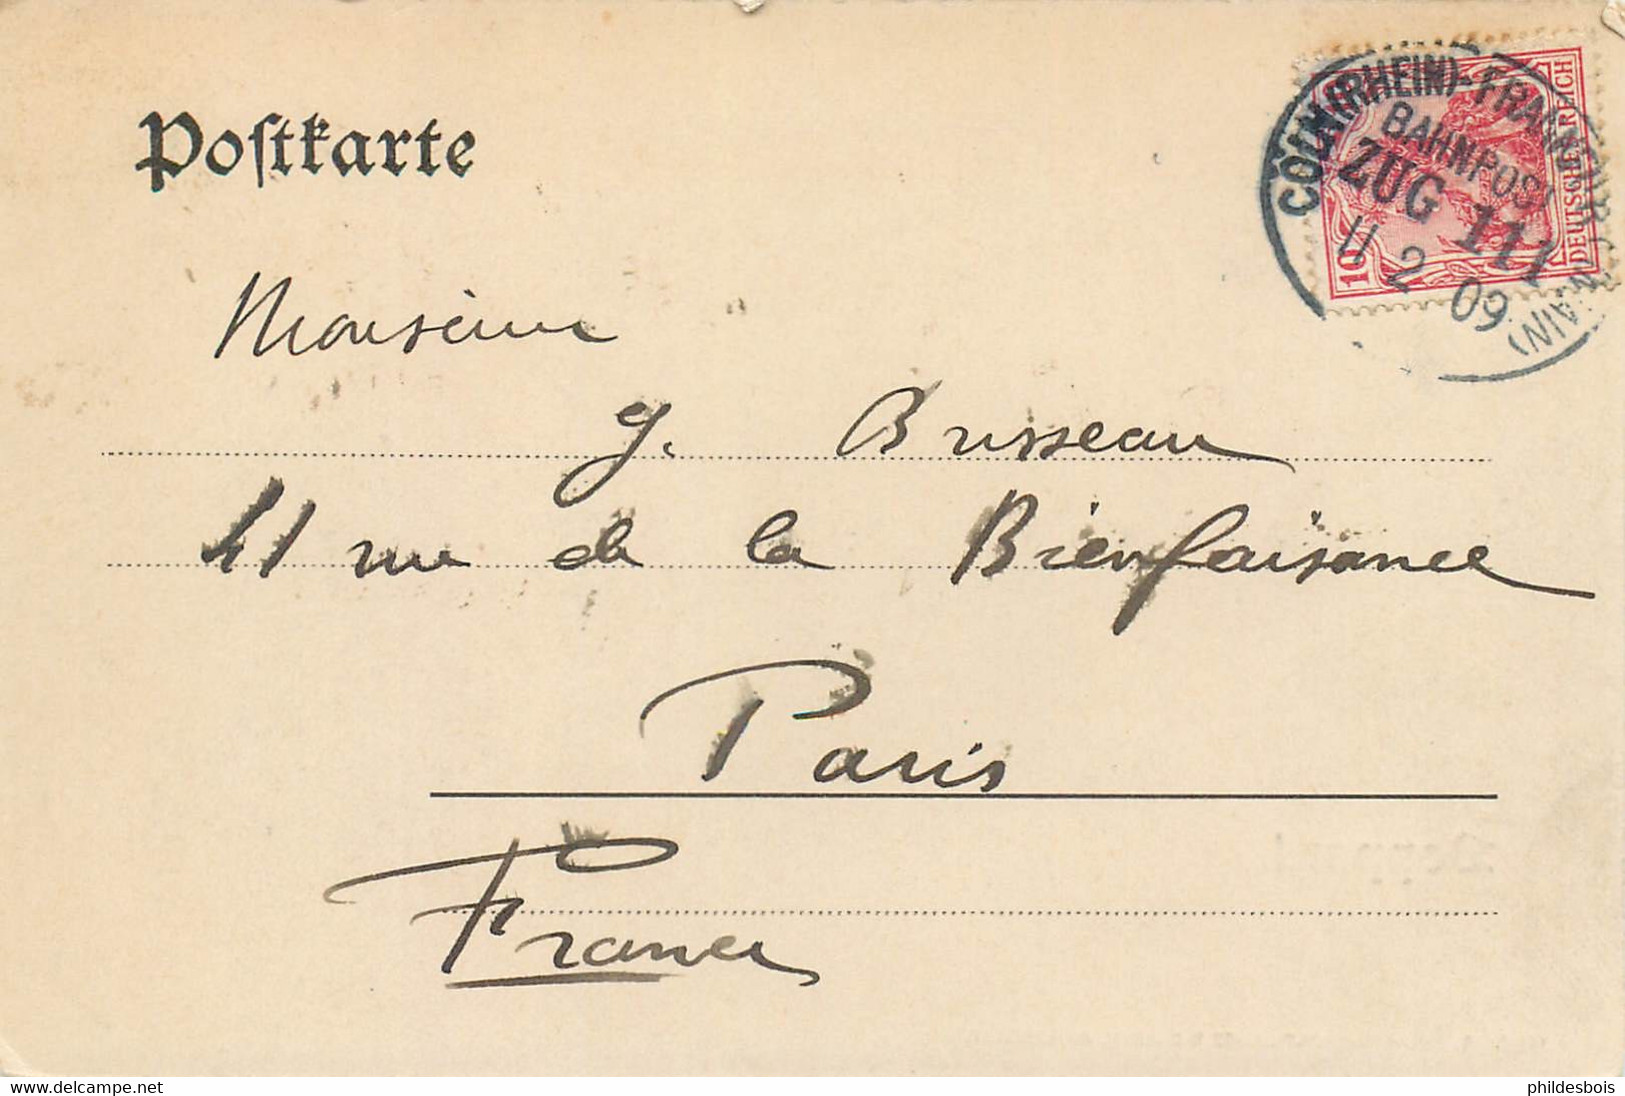 Postkarte
CÖLN (RHEIN)-FRANKFURT (MAIN)
BAHNPOST
ZUG 111
11 2 09
10
DEUTSCHES REICH
Monsieur
J. Brisseau
41 rue de la Bienfaisance
Paris
France
www.delcampe.net
phildesbois